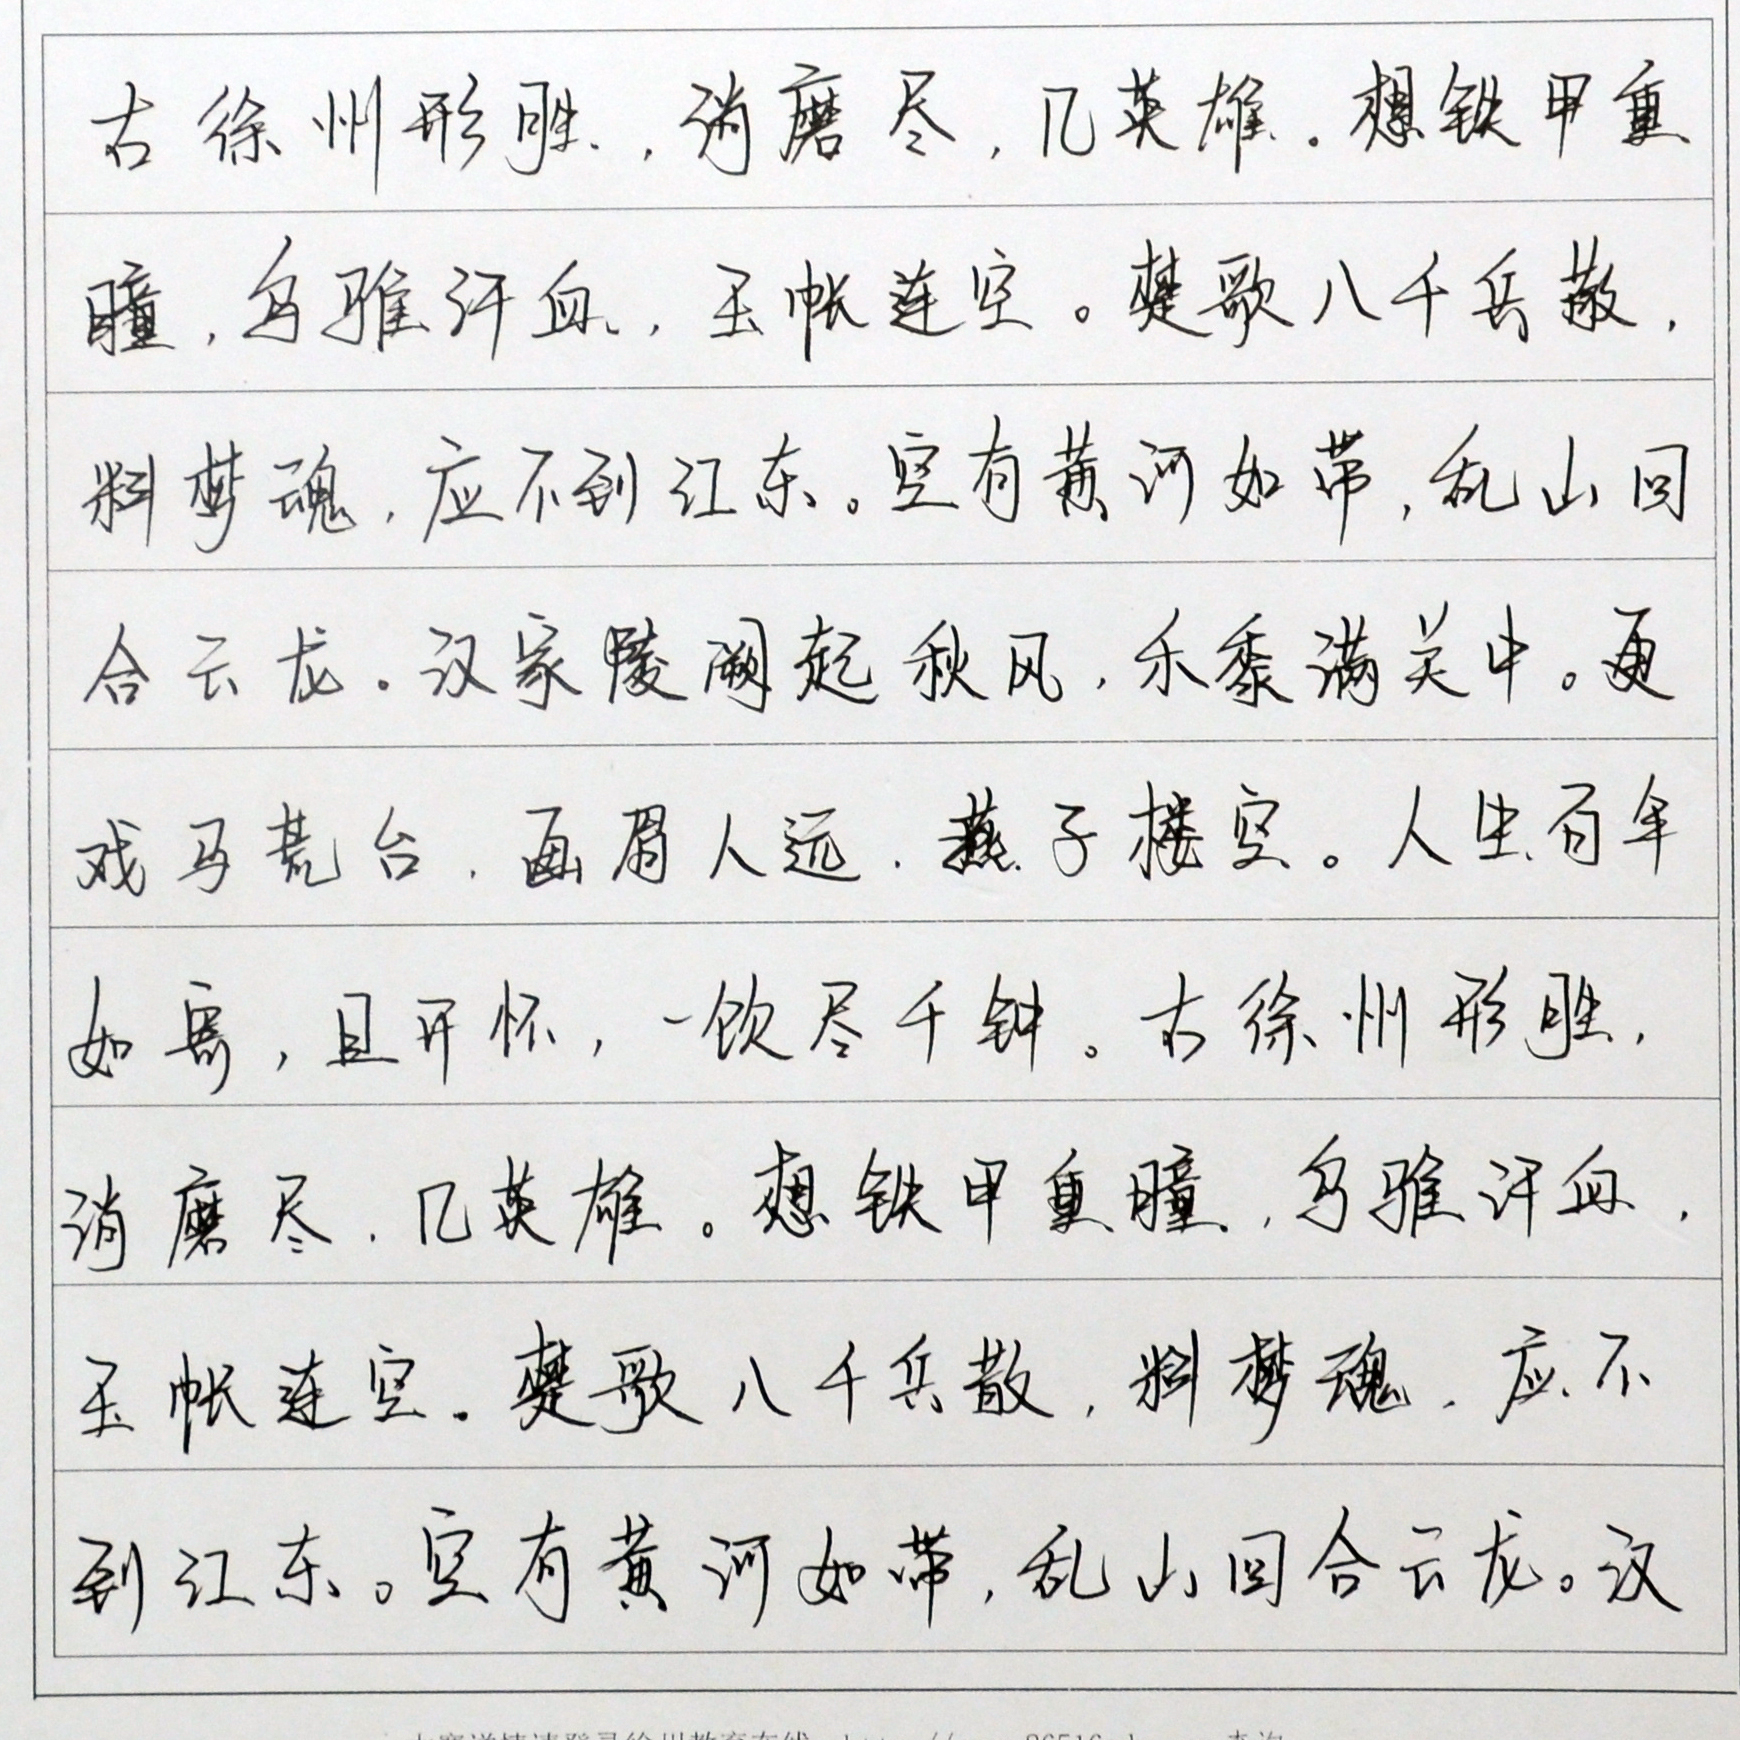 古徐州形胜，消磨尽，几英雄。想铁甲重
瞳，乌骓汗血，玉帐连空。楚歌八千兵散，
料梦魂，应不到江东。空有黄河如带，乱山回
合云龙。汉家陵阙起秋风，禾黍满关中。更
戏马荒台，画眉人远，燕子楼空。人生百年
如寄，且开怀，一饮尽千钟。古徐州形胜，
消磨尽，几英雄。想铁甲重瞳，乌骓汗血，
玉帐连空。楚歌八千兵散，料梦魂，应不
到江东。空有黄河如带，乱山回合云龙。汉